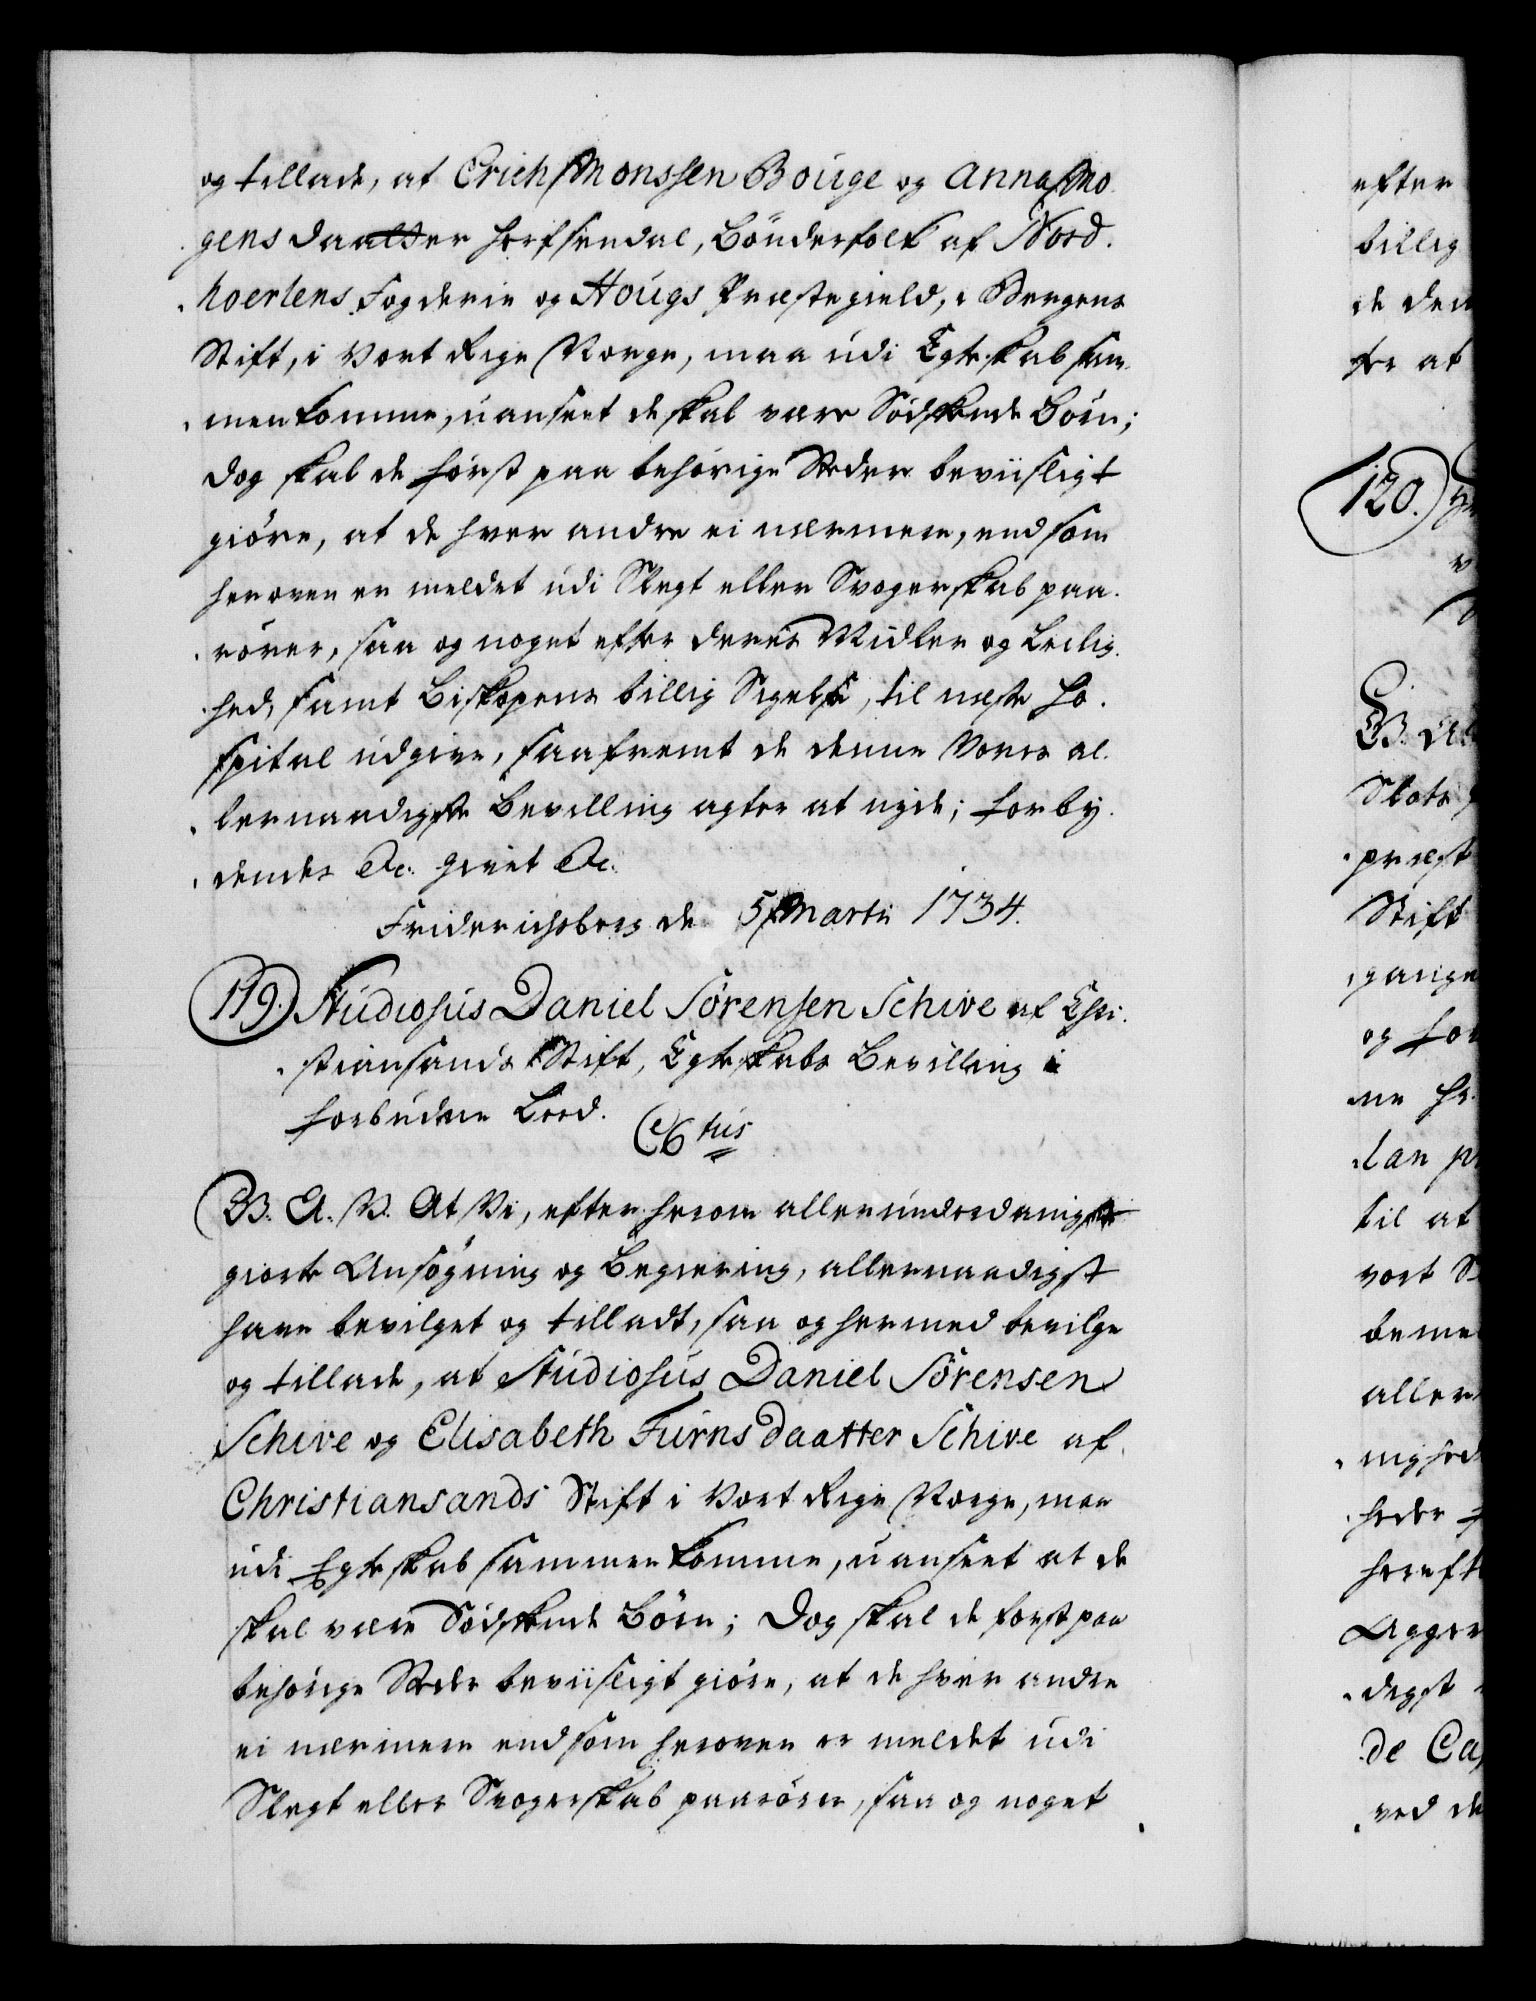 og tillade, at Erich Monssen Bouge og Anna Mo-
gens daatter Horssendal, Bönderfolk af Nord-
hoerlens Fogderie og Hougs Præstegield, i Bergens
Stift, i Vort Rige Norge, maa udi Egteskab sam-
menkomme, uanseet de skal være Södskende Börn;
dog skal de först paa behörige Steder beviisligt
giöre, at de hver andre ei nærmere, end som
heroven er meldet udi Slegt eller Svogerskab paa-
rörer, saa og noget efter deres Midler og Leilig-
hed, samt Biskopens billig Sigelse, til næste Ho-
spital udgive, saafremt de denne Vores al-
lernaadigste Bevilling agter at nyde; Forby-
dendes &c. Givet &c.
Friderichsberg de 5 Martii 1734.
119. Studiosus Daniel Sörensen Schive af Chri-
stiansands Stift, Egteskabs Bevilling i
forbudne Leed.
C 6tus
G. A. V. At Vi, efter herom allerunderdanigst
giorte Ansögning og Begiering, allernaadigst
have bevilget og tilladt, saa og hermed bevilge
og tillade, at Studiosus Daniel Sörensen
Schive og Elisabeth Furns daatter Schive af
Christiansands Stift i Vort Rige Norge, maa
udi Egteskab sammenkomme, uanseet at de
skal være Södskende Börn; Dog skal de först paa
behörige Steder beviisligt giöre, at de hver andre
ei nærmere end som heroven er meldet udi
Slegt eller Svogerskab paarörer, saa og noget
efter
billig
de den
ter at
120.
Slots
præst
Stift
gange
og for
ne Hr.
lan pr
til at
vort S
beme
aller
nighed
heder
hereft
Agger
digst
de Ca
ved de